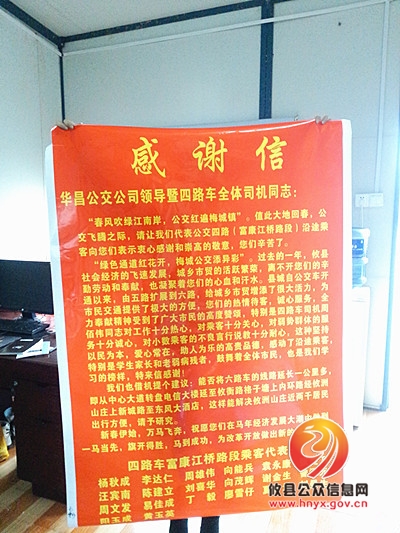 感谢信
华昌公交公司领导暨四路车全体司机同志：
“春风吹绿江南岸，公交红遍梅城镇”。值此大地回春，公
交飞腾之际，请让我们代表公交四路（富康江桥路段）沿途乘
客向您们表示衷心感谢和崇高的敬意，您们辛苦了。
“绿色通道红花开，梅城公交添异彩”。过去的一年，攸县
社会经济的飞速发展，城乡市贸的活跃繁荣，离不开您们的辛
勤劳动和奉献，也凝聚着您们的心血和汗水。县城自公交车开
通以来，由五路扩展到六路，给城乡市贸增添了很大活力，为
市民交通提供了极大的方便，您们的热情待客，诚心服务，全
力奉献精神受到了广大市民的高度赞颂，特别是四路车司机
伍伟同志对工作十分热心，对乘客十分关心，对回路群体的服
务十分诚心，对小数乘客的不良言行说教十分耐心，这种坚持
以民为本，爱心常在，助人为乐的高贵品德，感动了沿途乘客，
特别是学生家长和老弱病残者，鼓舞着全体市民，也是我们学
习的榜样，特来信感谢！
我们也借机提个建议：能否将六路车的线路延长一公里多，
即从中心大道转盘电信大楼延至攸衡路格子塘上内环路经攸洲
山庄上新城路至东风大酒店，这样能解决攸洲山庄近两千居民
出行方便，请予研究。
新春伊始，万马飞奔，祝愿您们在马年经济发展大潮中
一马当先，旗开得胜，马到成功，为改革开放做出新的
四路车富康江桥路段乘客代表
杨秋成 李达仁 周雄伟 向能兵 袁永康
汪宾南 陈建立 刘喜华 向茂辉 谢金生
周文发 易佳成 丁毅 廖雪仔
阳玉成 黄玉英
攸县公众信息网
www.hnyx.gov.cn